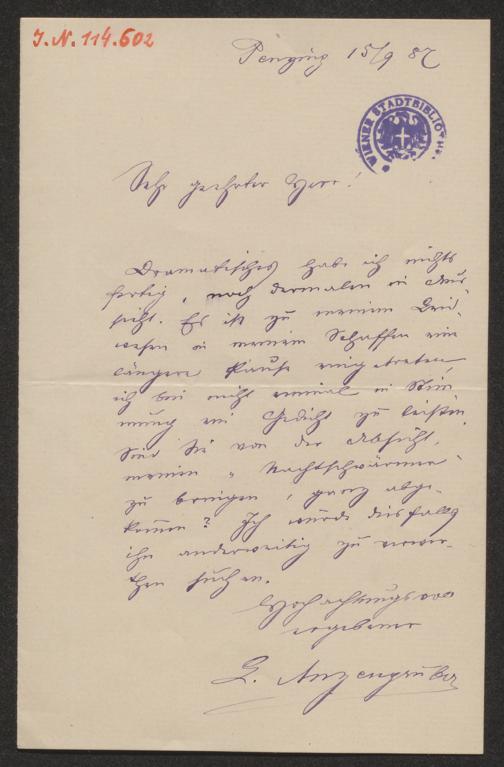 J. N. 114.602
Penzing 15/9 87
WIENER STADTBIBLIOTHEK
Sehr geehrter Herr!
Dramatisches habe ich nichts
fertig, noch dermalen in Aus-
sicht. Es ist zu meinem Leid-
wesen in meinem Schaffen eine
längere Pause eingetreten,
ich bin nicht einmal in Stim-
mung ein Gedicht zu leisten.
Sind Sie von der Absicht,
meinen „Nachtschwärmer“
zu bringen, ganz abge-
kommen? Ich würde diesfalls
ihn anderweitig zu verwer-
then suchen.
Hochachtungsvoll
ergebener
L. Anzengruber